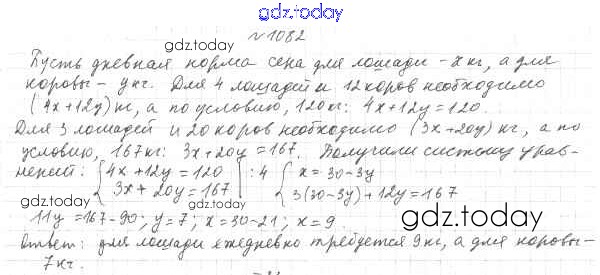 gdz.today
№1082
gdz.today
Пусть дневная норма сена для лошади - x кг, а для
коровы - y кг. Для 4 лошадей и 12 коров необходимо
(4x+12y) кг, а по условию, 120 кг: 4x+12y=120.
Для 3 лошадей и 20 коров необходимо (3x+20y) кг, а по
условию, 167 кг: 3x+20y=167. Получили систему урав-
нений: { 4x+12y=120 | :4 { x=30-3y
3x+20y=167 3(30-3y)+12y=167
gdz.today
11y=167-90; y=7; x=30-21; x=9.
gdz.today
Ответ: для лошади ежедневно требуется 9 кг, а для коровы -
7 кг.